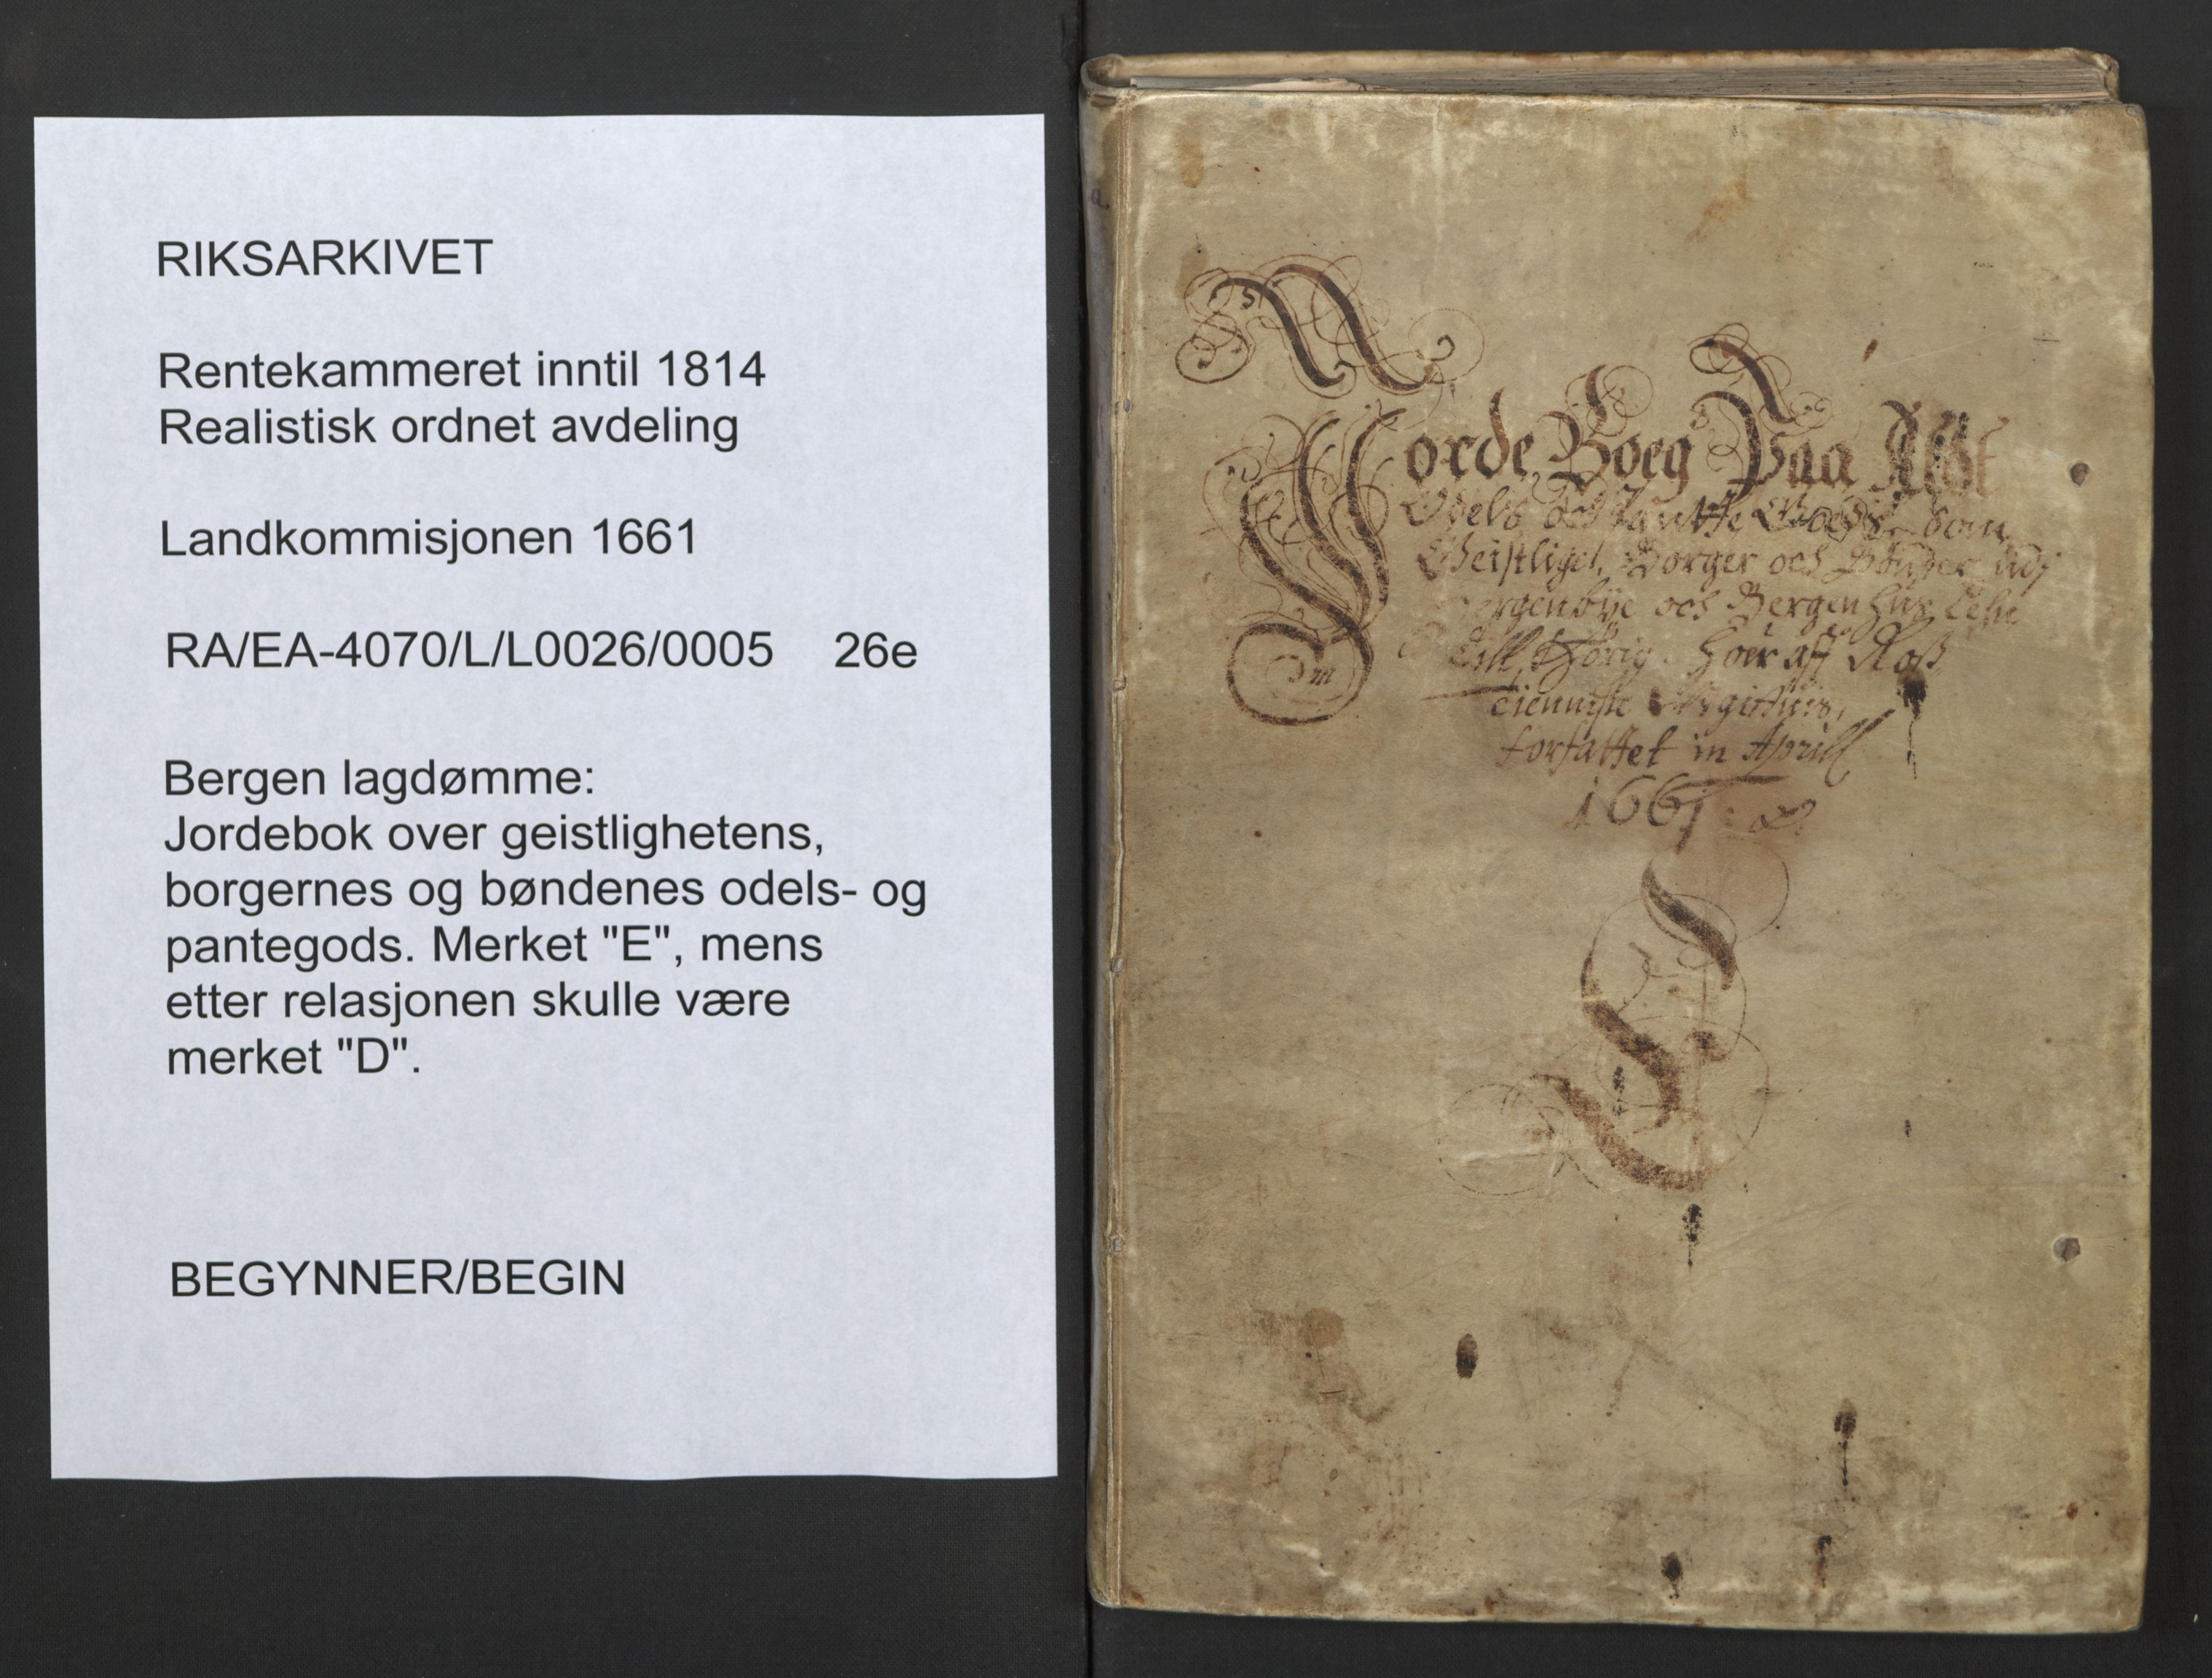 RIKSARKIVET
Rentekammeret inntil 1814
Realistisk ordnet avdeling
Landkommisjonen 1661
RA/EA-4070/L/L0026/0005 26e
Bergen lagdømme:
Jordebok over geistlighetens,
borgernes og bøndenes odels- og
pantegods. Merket "E", mens
etter relasjonen skulle være
merket "D".
BEGYNNER/BEGIN
Jorde Boeg Paa Alt
Odels och Pantte Goeds Som
Geistlighed, Borger och Bønder udj
Bergenbye och Bergenhus Lehn
Till hørig. Hoer aff Roß
tienniste
forfattet in Aprill
1661
E